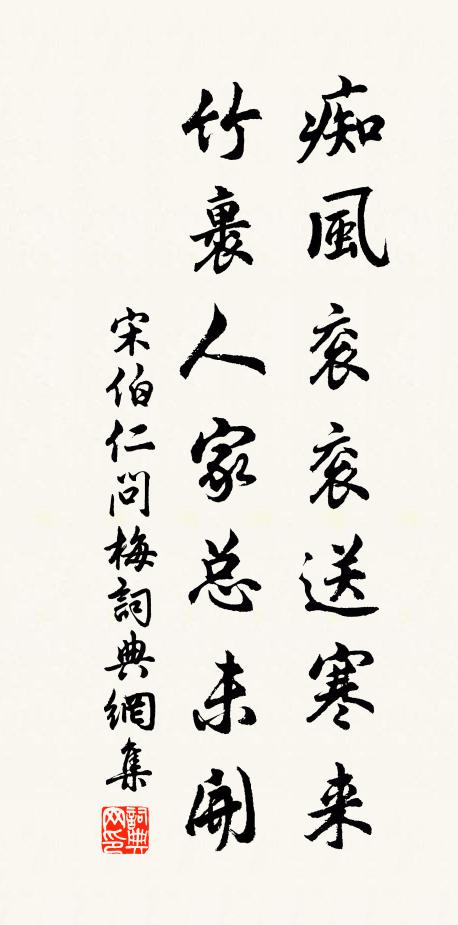 痴風衮衮送寒来
竹裏人家总未開
宋伯仁問梅詞典網集
詞典网印